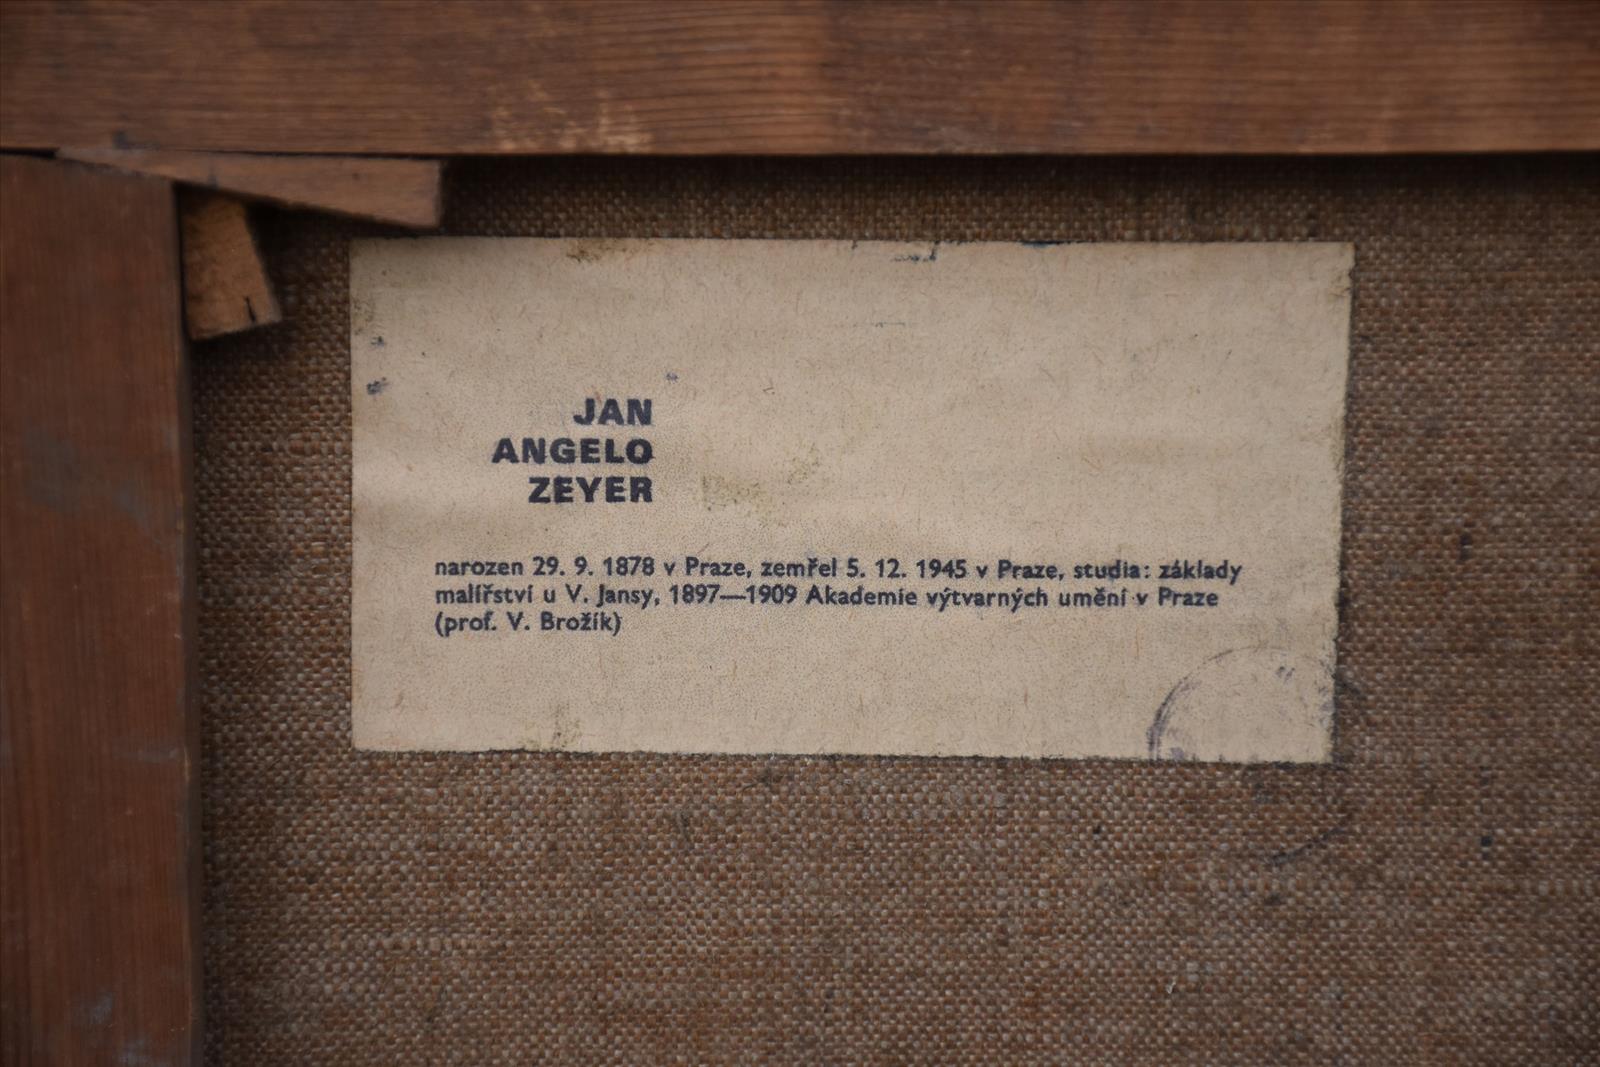 JAN
ANGELO
ZEYER
narozen 29. 9. 1878 v Praze, zemřel 5. 12. 1945 v Praze, studia: základy
malířství u V. Jansy, 1897—1909 Akademie výtvarných umění v Praze
(prof. V. Brožík)